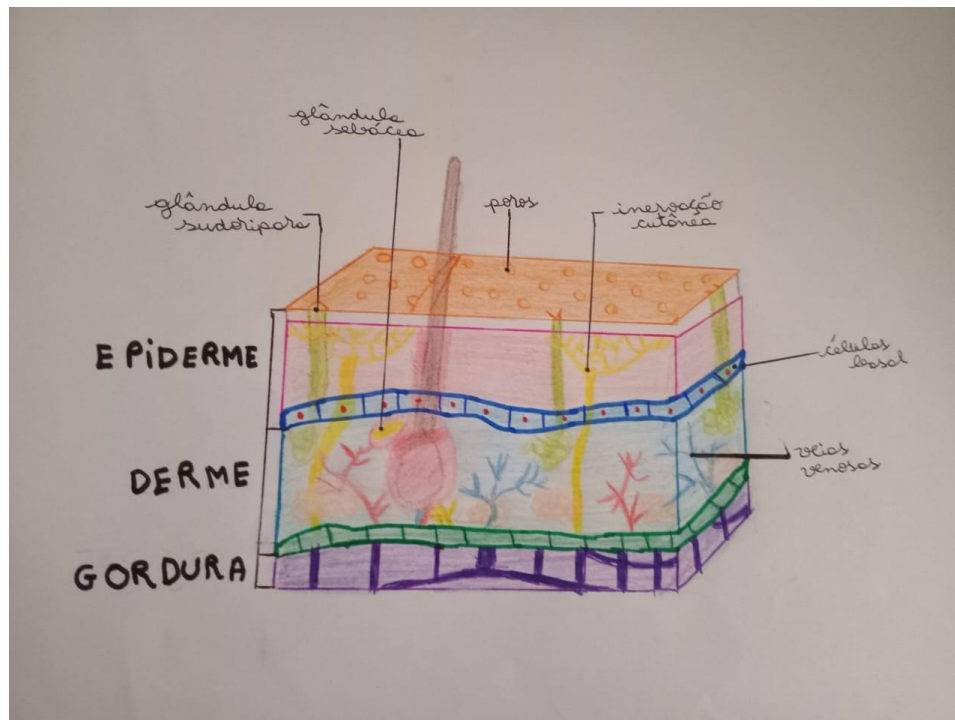 glândula
sebácea
glândula
sudoripara
poros
inervação
cutânea
EPiDERME
células
basal
DERME
veias
venosas
GORDURA